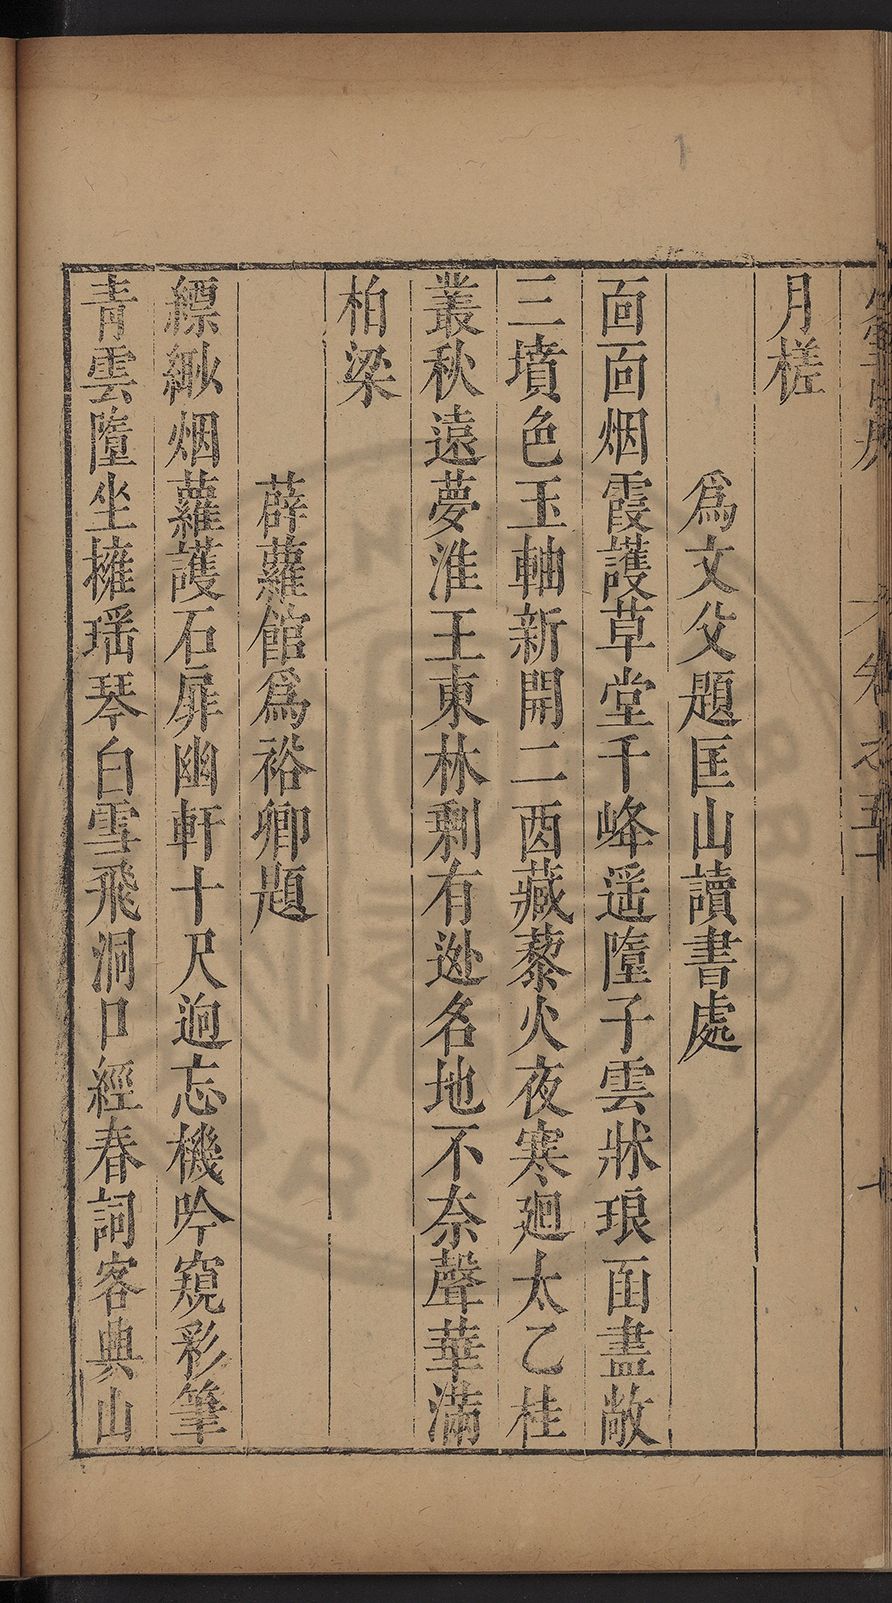 月槎
爲文父題匡山讀書處
靣靣烟霞護草堂千峰遥墮子雲牀琅函盡敞
三墳色玉軸新開二酉藏藜火夜寒廻太乙桂
叢秋遠夢淮王東林剩有逃名地不奈聲華滿
柏梁
薜蘿館爲裕卿題
縹緲烟蘿護石扉幽軒十尺逈忘機吟窺彩筆
青雲墮坐擁瑶琴白雪飛洞口經春詞客典山
卷之五
十